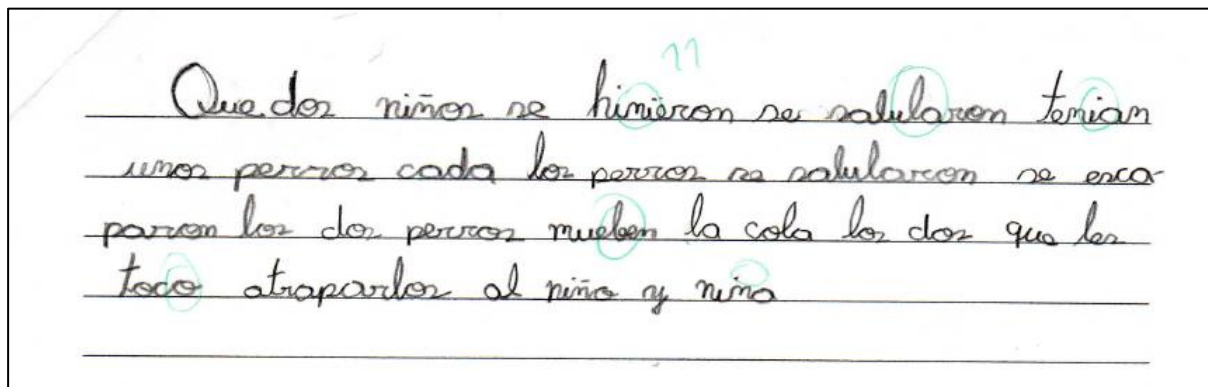 11
Que dos niños se hiniëron se salularon tenian
unos perros cada los perros se salularon se esca-
paron los dos perros mueben la cola los dos que les
toco atraparlos al niño y nina